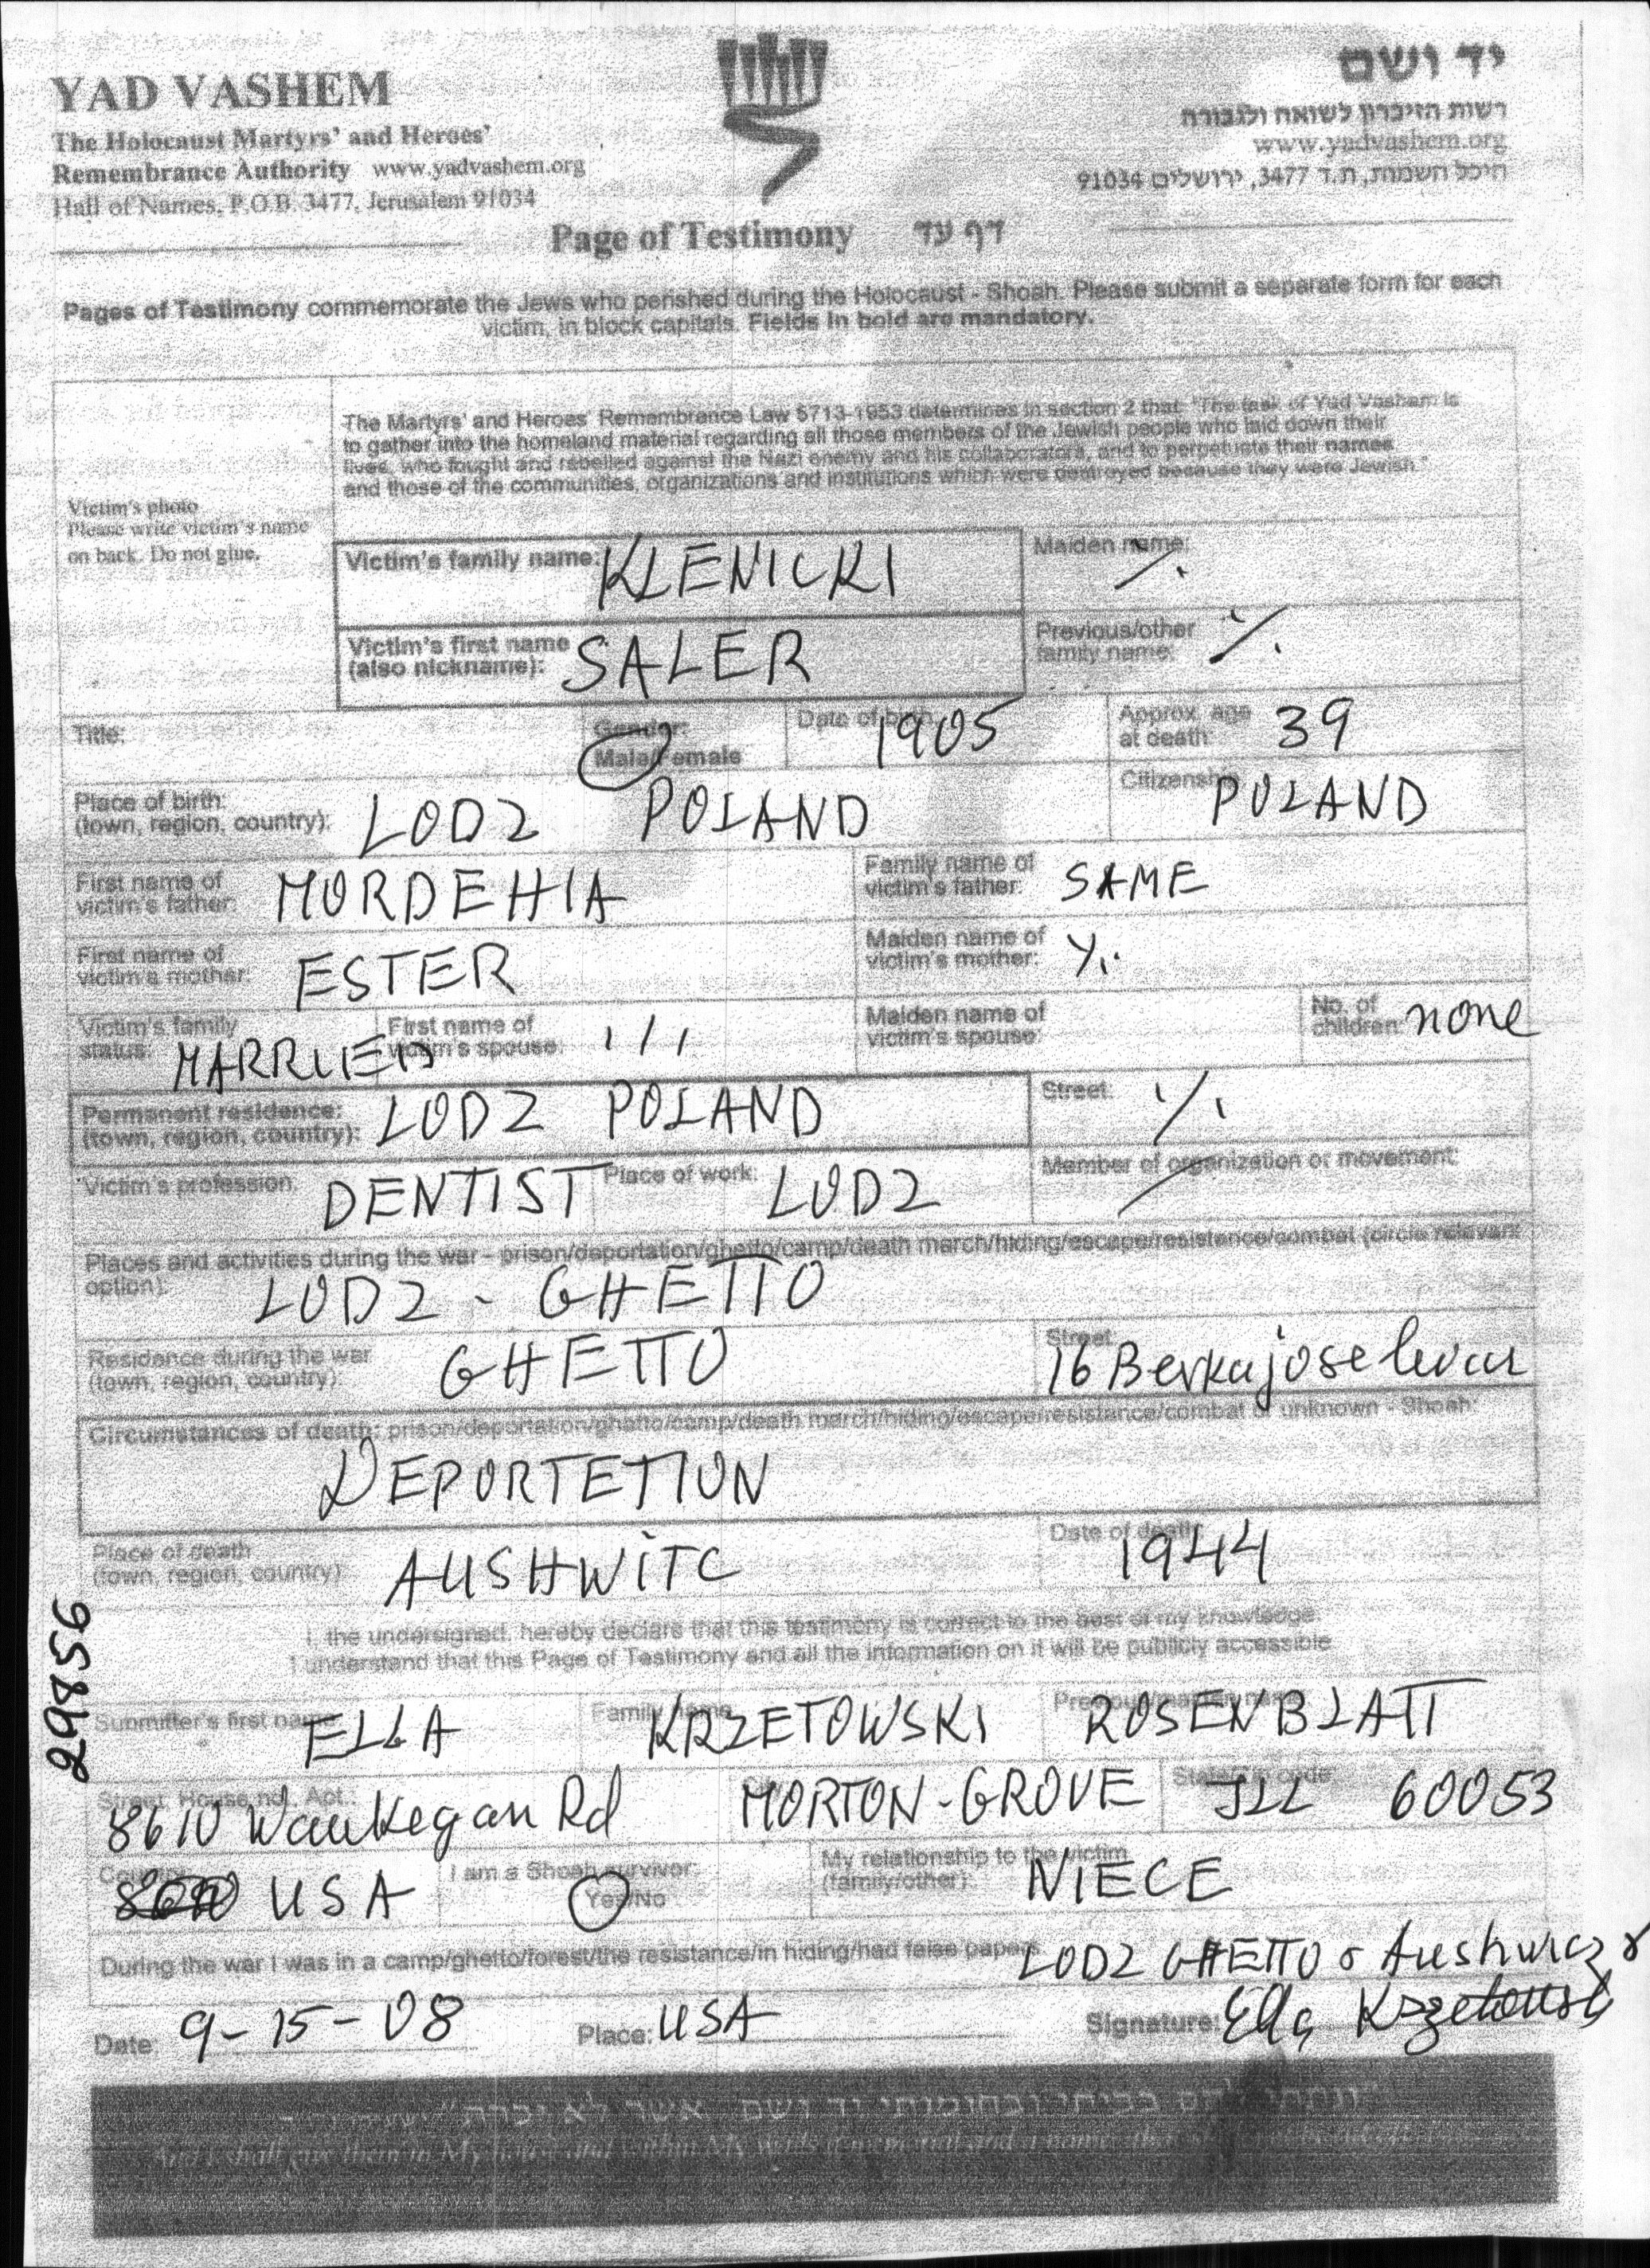 YAD VASHEM
The Holocaust Martyrs' and Heroes'
Remembrance Authority www.yadvashem.org
Hall of Names, P.O.B. 3477, Jerusalem 91034
יד ושם
רשות הזיכרון לשואה ולגבורה
www.yadvashem.org
היכל השמות, ת.ד 3477, ירושלים 91034
Page of Testimony דף עד
Pages of Testimony commemorate the Jews who perished during the Holocaust - Shoah. Please submit a separate form for each
victim, in block capitals. Fields in bold are mandatory.
The Martyrs' and Heroes' Remembrance Law 5713-1953 determines in section 2 that: "The task of Yad Vashem is
to gather into the homeland material regarding all those members of the Jewish people who laid down their
lives, who fought and rebelled against the Nazi enemy and his collaborators, and to perpetuate their names
and those of the communities, organizations and institutions which were destroyed because they were Jewish."
Victim's photo
Please write victim's name
on back. Do not glue.
Victim's family name: KLENICKI Maiden name: ./.
Victim's first name
(also nickname): SALER Previous/other
family name: ./.
Title: Gender:
Male/Female Date of birth: 1905 Approx. age
at death: 39
Place of birth:
(town, region, country): LODZ POLAND Citizenship: POLAND
First name of
victim's father: MORDEHIA Family name of
victim's father: SAME
First name of
victim's mother: ESTER Maiden name of
victim's mother: ./.
Victim's family
status: MARRIED First name of
victim's spouse: / / / Maiden name of
victim's spouse: No. of
children: none
Permanent residence:
(town, region, country): LODZ POLAND Street: ./.
Victim's profession: DENTIST Place of work: LODZ Member of organization or movement:
Places and activities during the war - prison/deportation/ghetto/camp/death march/hiding/escape/resistance/combat (circle relevant
option): LODZ - GHETTO
Residence during the war
(town, region, country): GHETTO Street: 16 Berka
Circumstances of death: prison/deportation/ghetto/camp/death march/hiding/escape/resistance/combat or unknown - Shoah:
DEPORTETION
Place of death
(town, region, country): AUSHWITC Date of death: 1944
I, the undersigned, hereby declare that this testimony is correct to the best of my knowledge.
I understand that this Page of Testimony and all the information on it will be publicly accessible
29856
Submitter's first name: ELLA Family name: KRZETOWSKI Previous/maiden name: ROSENBLATT
Street, House no., Apt.: 8610 Waukegan Rd MORTON-GROVE State/Zip code: ILL 60053
Country: USA I am a Shoah survivor:
Yes/No My relationship to the victim
(family/other): NIECE
During the war I was in a camp/ghetto/forest/the resistance/in hiding/had false papers: LODZ GHETTO & Aushwicz
Date: 9-15-08 Place: USA Signature: Ella Krzetowski